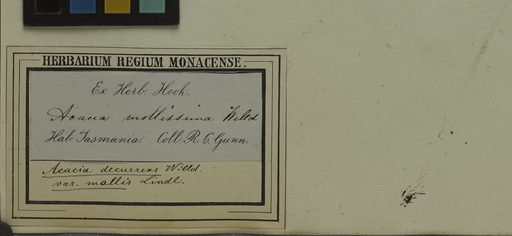 HERBARIUM REGIUM MONACENSE.
Ex Herb. Hook.
Acacia mollissima Willd
Hab. Tasmania Coll. R. C. Gunn
Acacia decurrens Willd.
var. mollis Lindl.